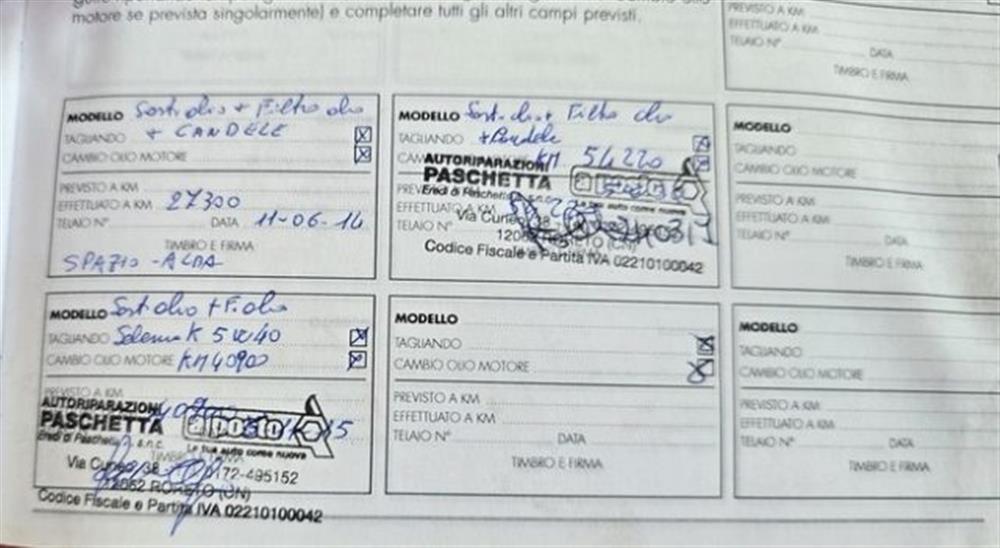 motore se prevista singolarmente) e completare tutti gli altri campi previsti.
PREVISTO A KM
EFFETTUATO A KM
TELAIO N° DATA
TIMBRO E FIRMA
MODELLO Sost olio + Filtro olio
TAGLIANDO + CANDELE
CAMBIO OLIO MOTORE
PREVISTO A KM
EFFETTUATO A KM 27300
TELAIO N° DATA 11-06-14
TIMBRO E FIRMA
SPAZIO - ALBA
MODELLO Sost olio + Filtro olio
TAGLIANDO + Candele
KM 54220
AUTORIPARAZIONI
PASCHETTA
a posto
Eredi di Paschetta s.n.c.
La tua auto come nuova
EFFETTUATO A KM
Via Cuneo, 38
TELAIO N°
RORETO (CN)
Codice Fiscale e Partita IVA 02210100042
MODELLO
TAGLIANDO
CAMBIO OLIO MOTORE
PREVISTO A KM
EFFETTUATO A KM
TELAIO N° DATA
TIMBRO E FIRMA
MODELLO Sost olio + F. olio
TAGLIANDO Selenia K 5W40
CAMBIO OLIO MOTORE KM 40900
PREVISTO A KM
AUTORIPARAZIONI
PASCHETTA
a posto
Eredi di Paschetta s.n.c.
La tua auto come nuova
Via Cuneo, 38 0172-495152
12062 RORETO (CN)
Codice Fiscale e Partita IVA 02210100042
MODELLO
TAGLIANDO
CAMBIO OLIO MOTORE
PREVISTO A KM
EFFETTUATO A KM
TELAIO N° DATA
TIMBRO E FIRMA
MODELLO
TAGLIANDO
CAMBIO OLIO MOTORE
PREVISTO A KM
EFFETTUATO A KM
TELAIO N° DATA
TIMBRO E FIRMA